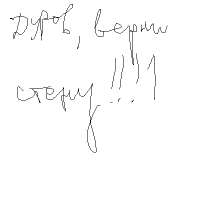 Дуров, верни
стену!!!1